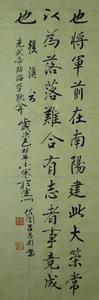 也將軍前在南陽建此大策常
以為落落難合有志者事竟成
也
後漢書
光武帝臨淄勞耿弇